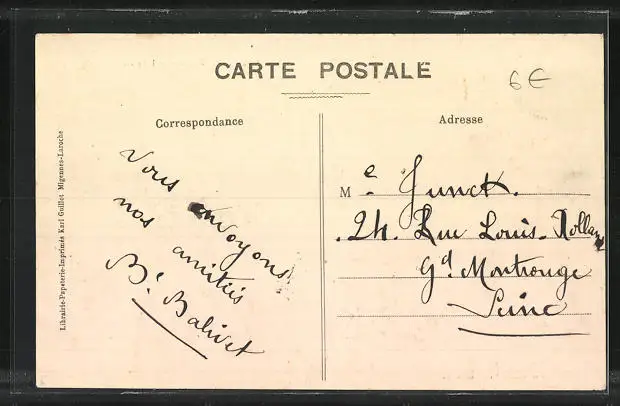 CARTE POSTALE
6€
Correspondance
Vous envoyons
nos amitiés
Bt Balivet
Adresse
Me Junck.
24. Rue Louis-Rolland
Gd Montrouge
Seine
Librairie-Papeterie-Imprimés Karl Guillot Migennes-Laroche